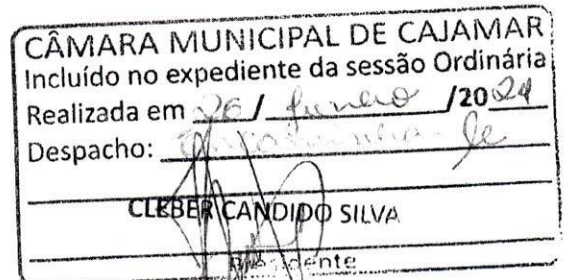 CÂMARA MUNICIPAL DE CAJAMAR
Incluído no expediente da sessão Ordinária
Realizada em 26 / junho /2024
Despacho: Encaminha-se
CLEBER CANDIDO SILVA
Presidente